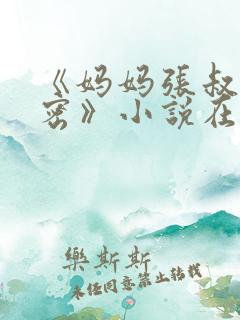 《妈妈張叔
密》小說在
樂斯斯
未经同意禁止转载